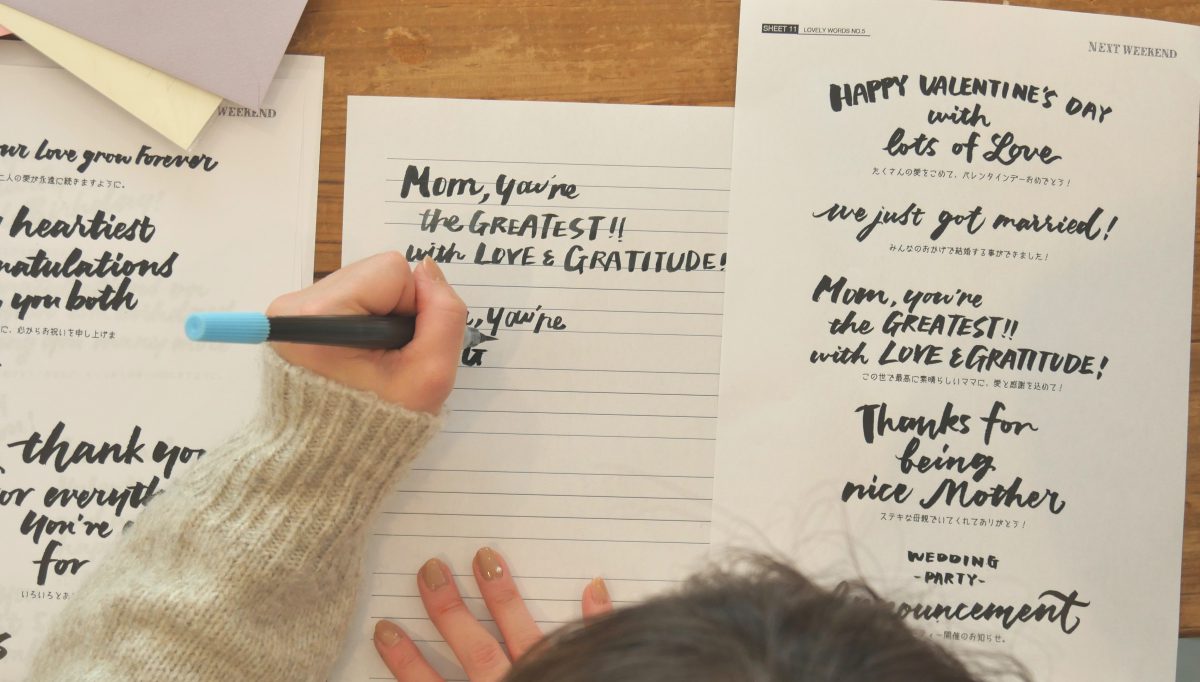 WEEKEND
our Love grow Forever
二人の愛が永遠に続きますように。
heartiest
you both
に、心からお祝いを申し上げま
thank
for
you're
for
Mom, you're
the GREATEST!!
with LOVE & GRATITUDE!
, you're
G
SHEET 11 LOVELY WORDS NO.5
NEXT WEEKEND
HAPPY VALENTINE'S DAY
with
lots of Love
たくさんの愛をこめて、バレンタインデーおめでとう!
we just got married!
みんなのおかげで結婚する事ができました!
Mom, you're
the GREATEST!!
with LOVE & GRATITUDE!
この世で最高に素晴らしいママに、愛と感謝を込めて!
Thanks for
being
nice Mother
ステキな母親でいてくれてありがとう!
WEDDING
-PARTY-
announcement
ィー開催のお知らせ。